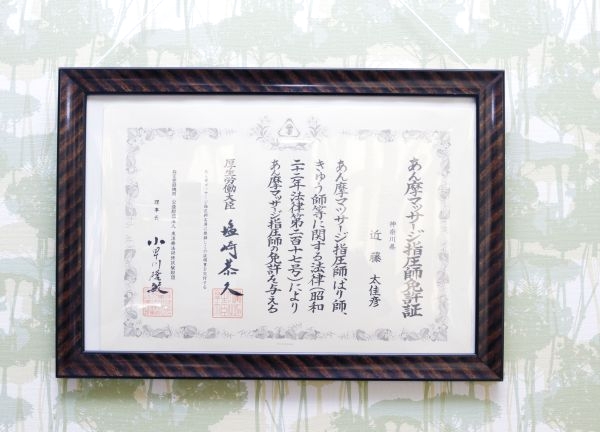 あん摩マッサージ指圧師免許証
神奈川県
近藤 太佳彦
あん摩マッサージ指圧師、はり師、
きゅう師等に関する法律(昭和
二十二年法律第二百十七号)により
あん摩マッサージ指圧師の免許を与える
厚生労働大臣
塩崎恭久
理事長
小早川隆敏